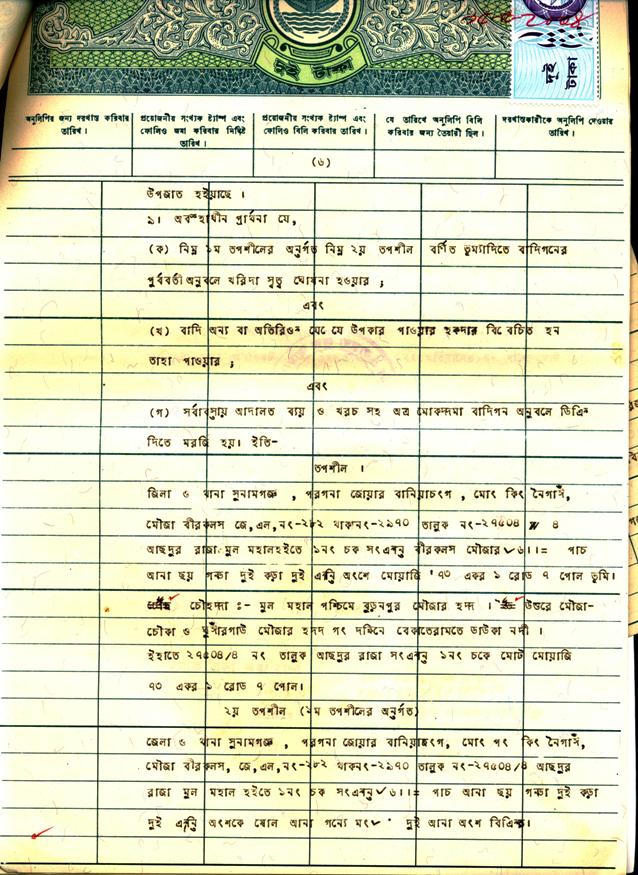 দুই টাকা
দুই টাকা
অনুলিপির জন্য দরখাস্ত করিবার তারিখ।
প্রয়োজনীয় সংখ্যক ষ্ট্যাম্প এবং ফোলিও জমা করিবার নির্দ্দিষ্ট তারিখ।
প্রয়োজনীয় সংখ্যক ষ্ট্যাম্প এবং ফোলিও বিলি করিবার তারিখ।
যে তারিখে অনুলিপি বিলি করিবার জন্য তৈয়ারী ছিল।
দরখাস্তকারীকে অনুলিপি দেওয়ার তারিখ।
(৬)
উপজাত হইয়াছে ।
১। অবস্হাধীন প্রার্থনা যে,
(ক) নিম্ন ১ম তপশীলের অনুর্গত নিম্ন ২য় তপশীল বর্ণিত ভুম্যাদিতে বাদিগনের
পুর্ববর্তী অনুবলে খরিদা সুত্ব ঘোষনা হওয়ার ;
এবং
(খ) বাদি অন্য বা অতিরিও্ব যে যে উপকার পাওয়ার হকদার বিবেচিত হন
তাহা পাওয়ার ;
এবং
(গ) সর্বাবস্হায় আদালত ব্যয় ও খরচ সহ অত্র মোকদ্দমা বাদিগন অনুবলে ডিক্রি
দিতে মরজি হয়। ইতি-
তপশীল ।
জিলা ও থানা সুনামগঞ্জ , পরগনা জোয়ার বানিয়াচংগ , মোং কিং নৈগাঙ্গঁ,
মৌজা বীরকলস জে,এল,নং-২৮২ থাকনং-২১৭০ তালুক নং-২৭৫০৪ ৪
আছদুর রাজা মুল মহালহইতে ১নং চক সংএানু বীরকলস মৌজার ৬।।= পাচ
আনা ছয় গন্ডা দুই কড়া দুই এানি অংশে মোয়াজি ৭৩ একর ১ রোড ৭ পোল ভুমি।
চৌহদ্দা :- মুল মহাল পশ্চিমে বুড়নপুর মৌজার হদ্দ । উত্তরে মৌজা-
চৌকা ও মৌজার হদদ গং দক্ষিনে বেকাতেরামতে ডাউকা নদী ।
ইহাতে ২৭৫০৪/৪ নং তালুক আছদুর রাজা সংএানু ১নং চকে মোট মোয়াজি
৭৩ একর ১ রোড ৭ পোল।
২য় তপশীল (১ম তপশীলের অনুর্গত)
জেলা ও থানা সুনামগঞ্জ , পরগনা জোয়ার বানিয়াচংগ, মোং পং কিং নৈগাঙ্গঁ,
মৌজা বীরকলস, জে,এল,নং-২৮২ থাকনং-২১৭০ তালুক নং-২৭৫০৪/৪ আছদুর
রাজা মুল মহাল হইতে ১নং চক সংএানু ৬।।= পাচ আনা ছয় গন্ডা দুই কড়া
দুই এানি অংশকে ষোল আনা গন্যে মং দুই আনা অংশ বিক্রি।